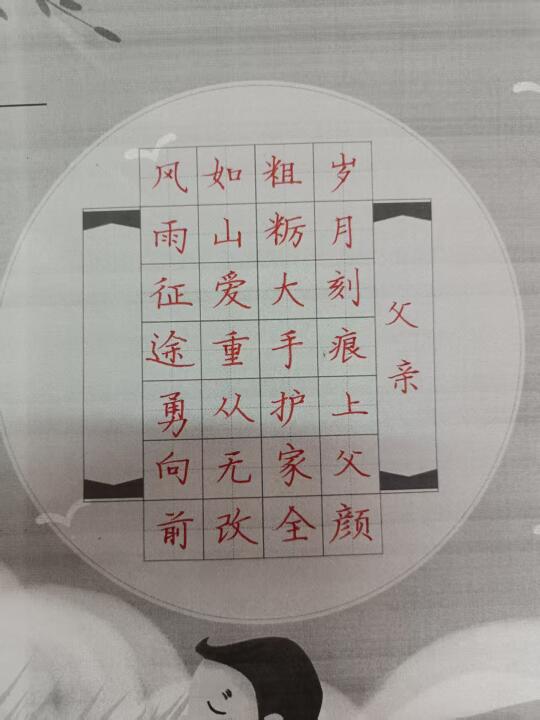 父亲
岁月刻痕上父颜
粗粝大手护家全
如山爱重从无改
风雨征途勇向前